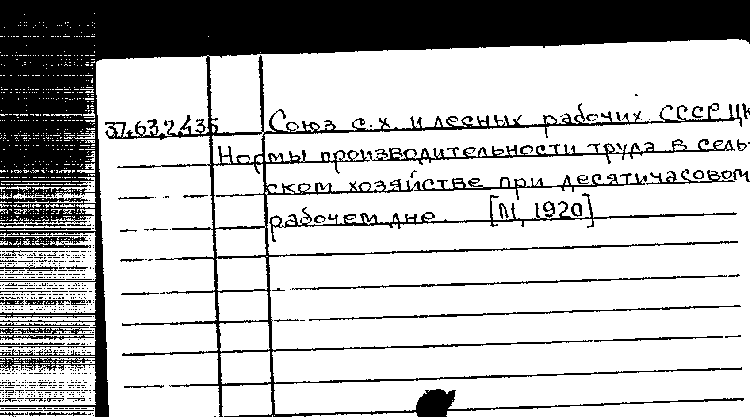 37.63.2.435 Союз с.х. и лесных рабочих СССР ЦК
Нормы производительности труда в сель-
ском хозяйстве при десятичасовом
рабочем дне. [М, 1920]